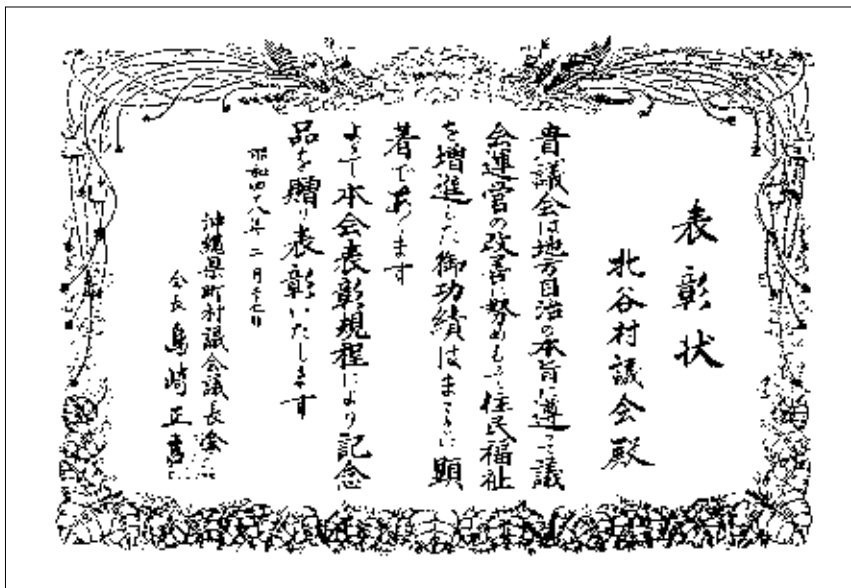 表彰状
北谷村議会殿
貴議会は地方自治の本旨に遵って議
会運営の改善に努めもって住民福祉
を増進した御功績はまことに顕
著であります
よって本会表彰規程により記念
品を贈り表彰いたします
昭和四十八年二月二十七日
沖縄県町村議会議長会
会長 島崎正喜